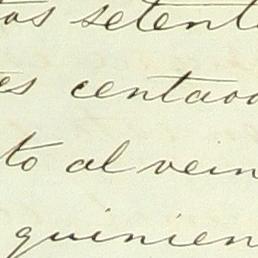 os setent
es centavo
to al vein
quinien